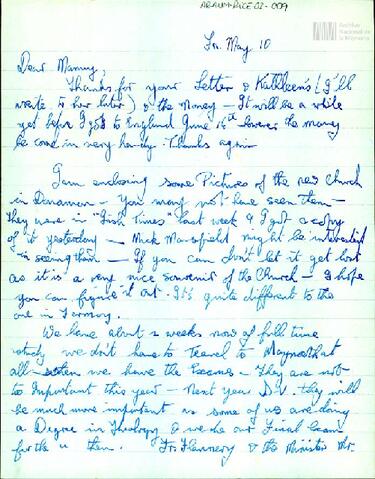 ARAUM-PICE 02-009
Archivo
Nacional de
la Memoria
Sn. May 10
Dear Mammy,
Thanks for your Letter & Kathleen's (I'll
write to her later) & the Money – It will be a while
yet before I get to England June 16th however the money
be come in very handy. Thanks again
I am enclosing some Pictures of the new church
in – You may not have seen them –
They were in "Irish Times" last week & I got a copy
of it yesterday – Mick Mansfield might be interested
in seeing them – If you can don't let it get lost
as it is a very nice souvenir of the Church – I hope
you can figure it out. It's quite different to the
one in
We have about 2 weeks now of full time
study we don't have to Travel to Maynooth at
all – then we have the Exams – They are not
so Important this year – Next year D.V. they will
be much more important as some of us are doing
a Degree in Theology & we do our Final Exam
for the then. Fr. Flannery & the Minister Mr.